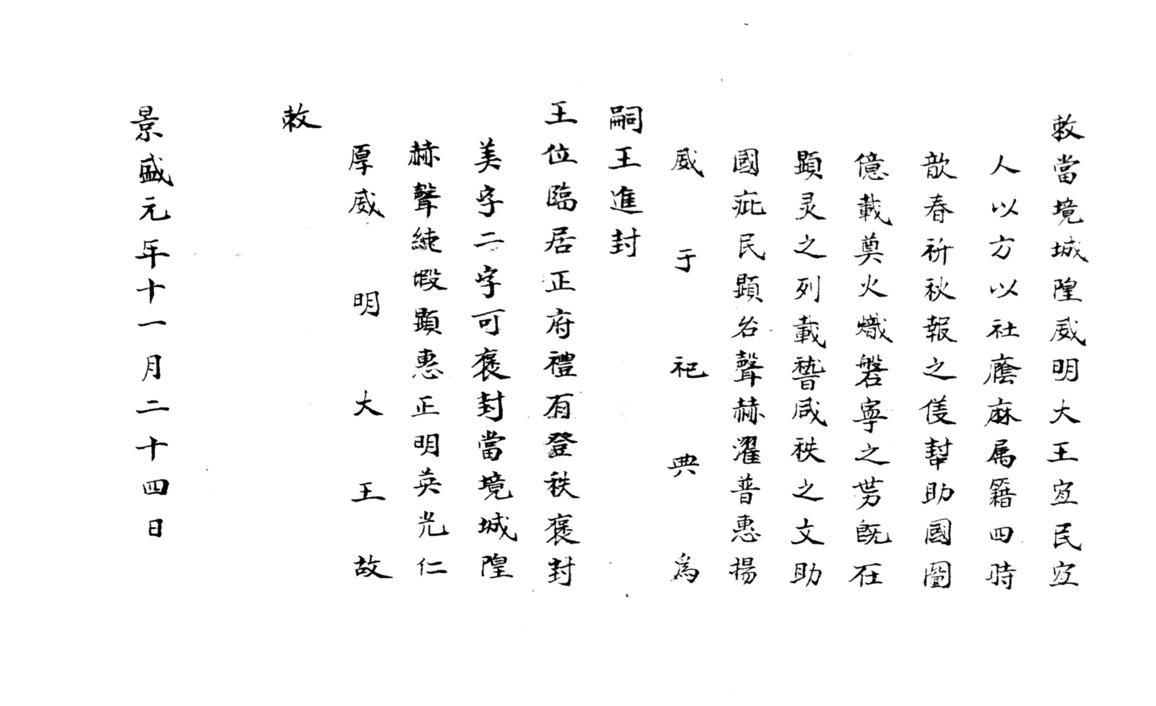 敕當境城隍威明大王宜民宜
人以方以社廕庥屬籍四時
歆春祈秋報之儀幇助國圖
億載奠火熾磐寧之势既在
顕灵之列載稽咸秩之文助
國庇民顕名聲赫濯普惠揚
威于祀典爲
嗣王進封
王位臨居正府禮有登秩褒封
美字二字可褒封當境城隍
赫聲純嘏顕惠正明英光仁
厚威明大王故
敕
景盛元年十一月二十四日